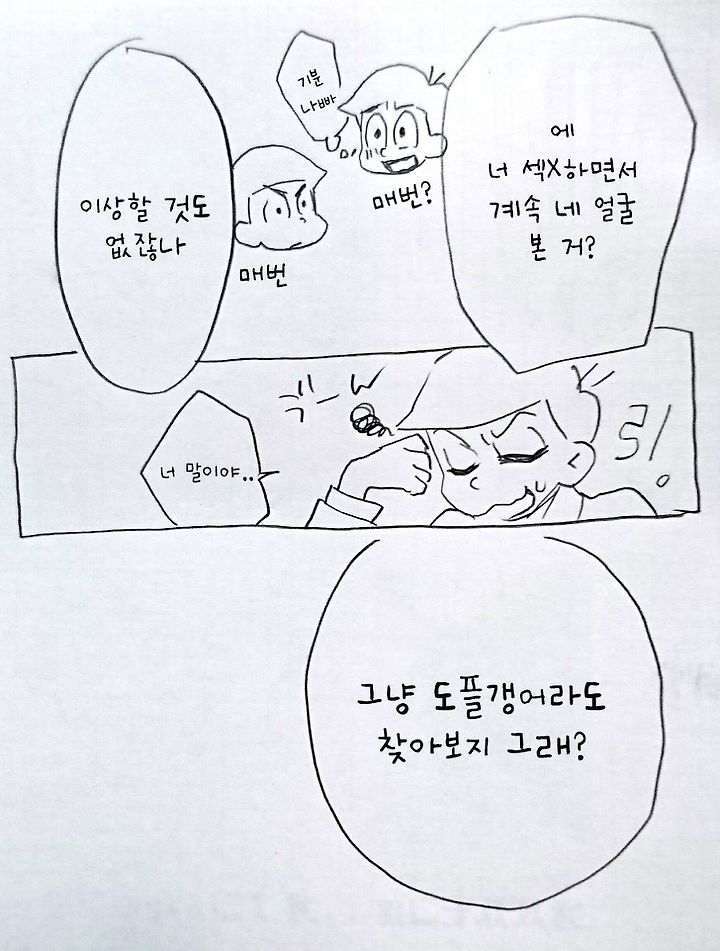 에
너 섹X하면서
계속 네 얼굴
본 거?
기분
나빠
매번?
이상할 것도
없잖냐
매번
너 말이야..
그냥 도플갱어라도
찾아보지 그래?